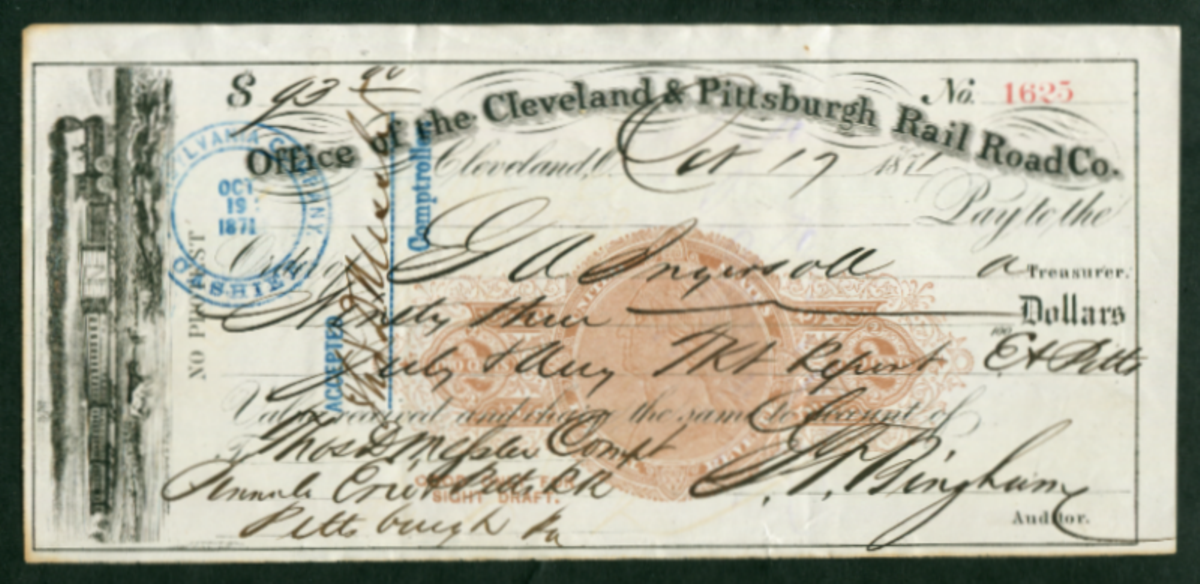 $ 93 90
No. 1625
Office of the Cleveland & Pittsburgh Rail Road Co.
Cleveland, O. Oct 17 1871
Pay to the
Order of G A Ingersoll a Treasurer.
Ninety three Dollars
July & Aug Tkt Report E & Pitts
Value received and charge the same to account of
Thos D Messler Compt
Pitts RR
Pittsburgh Pa
G. A. Bingham
Auditor.
NO PROTEST
OCT
19
1871
CASHIER
ACCEPTED
Comptroller
SIGHT DRAFT.